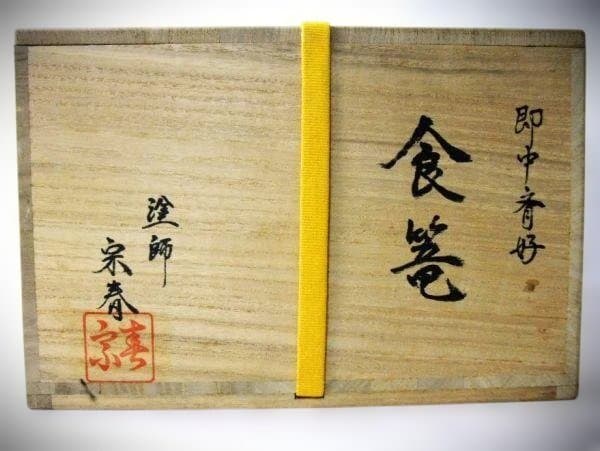 即中斉好
食篭
塗師
宗春
宗春